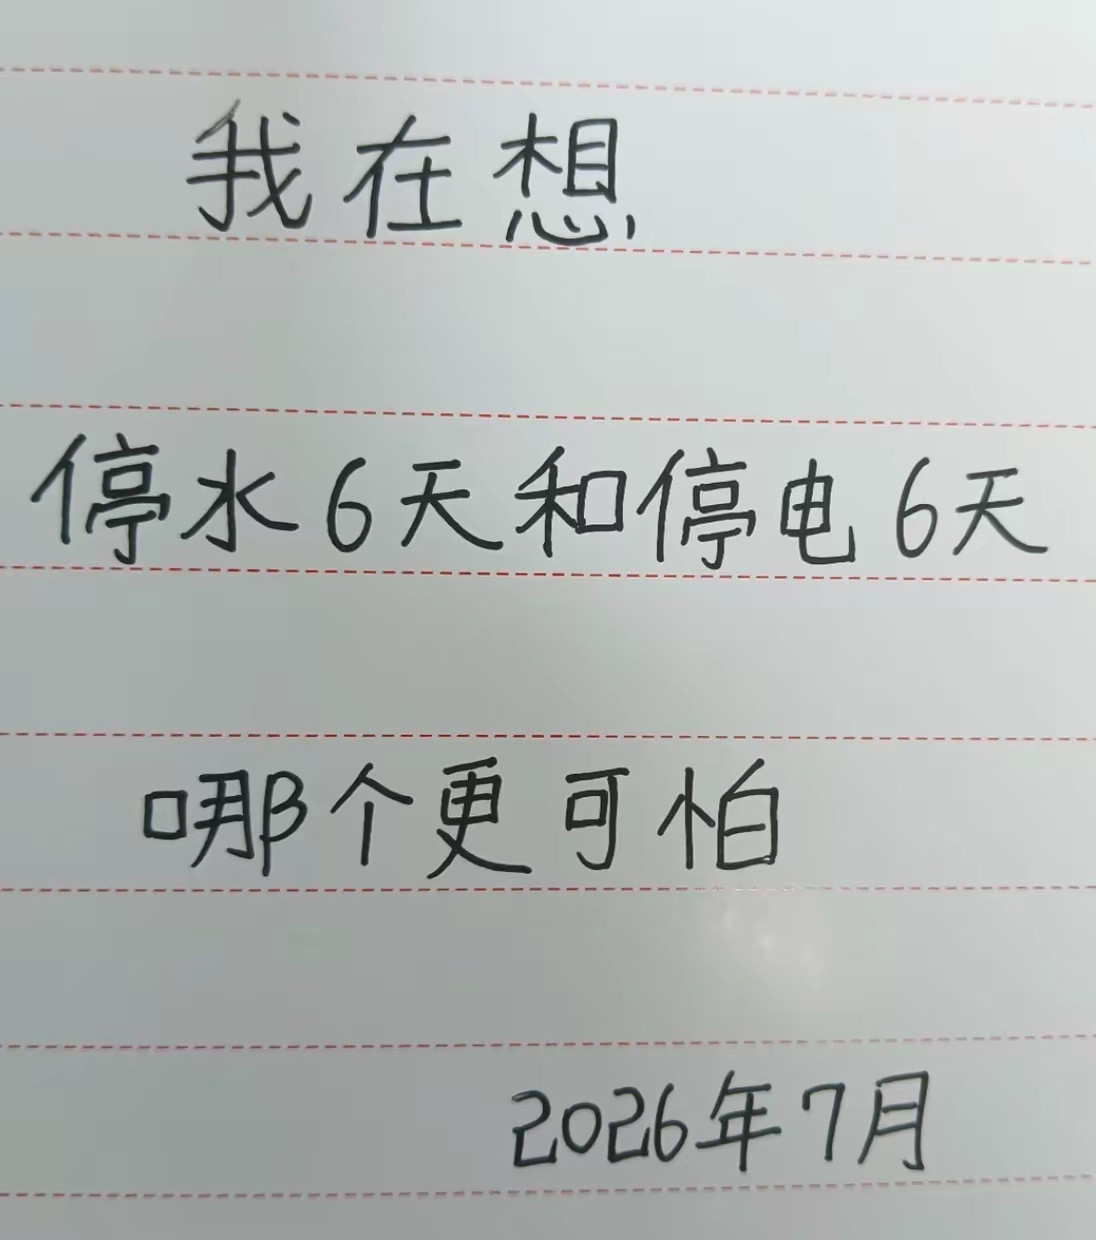 我在想
停水6天和停电6天
哪个更可怕
2026年7月